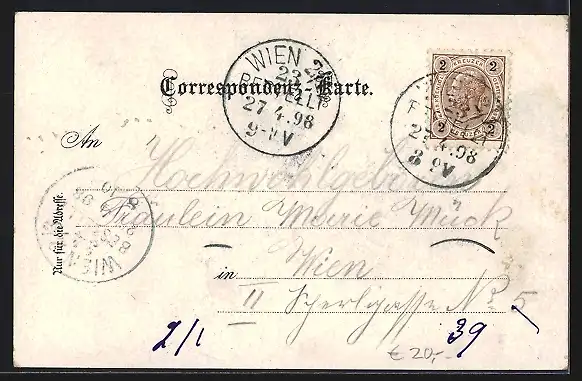 WIEN
BESTELLT
27.4.98
9-11V
Correspondenz-Karte.
2 KREUZER 2
2 KREUZER 2
27.4.98
An
Hochwohlgeboren
Fräulein Marie Muck
Nur für die Adresse.
WIEN
in Wien
II Sperlgasse No 5
2/1
39
€ 20,-